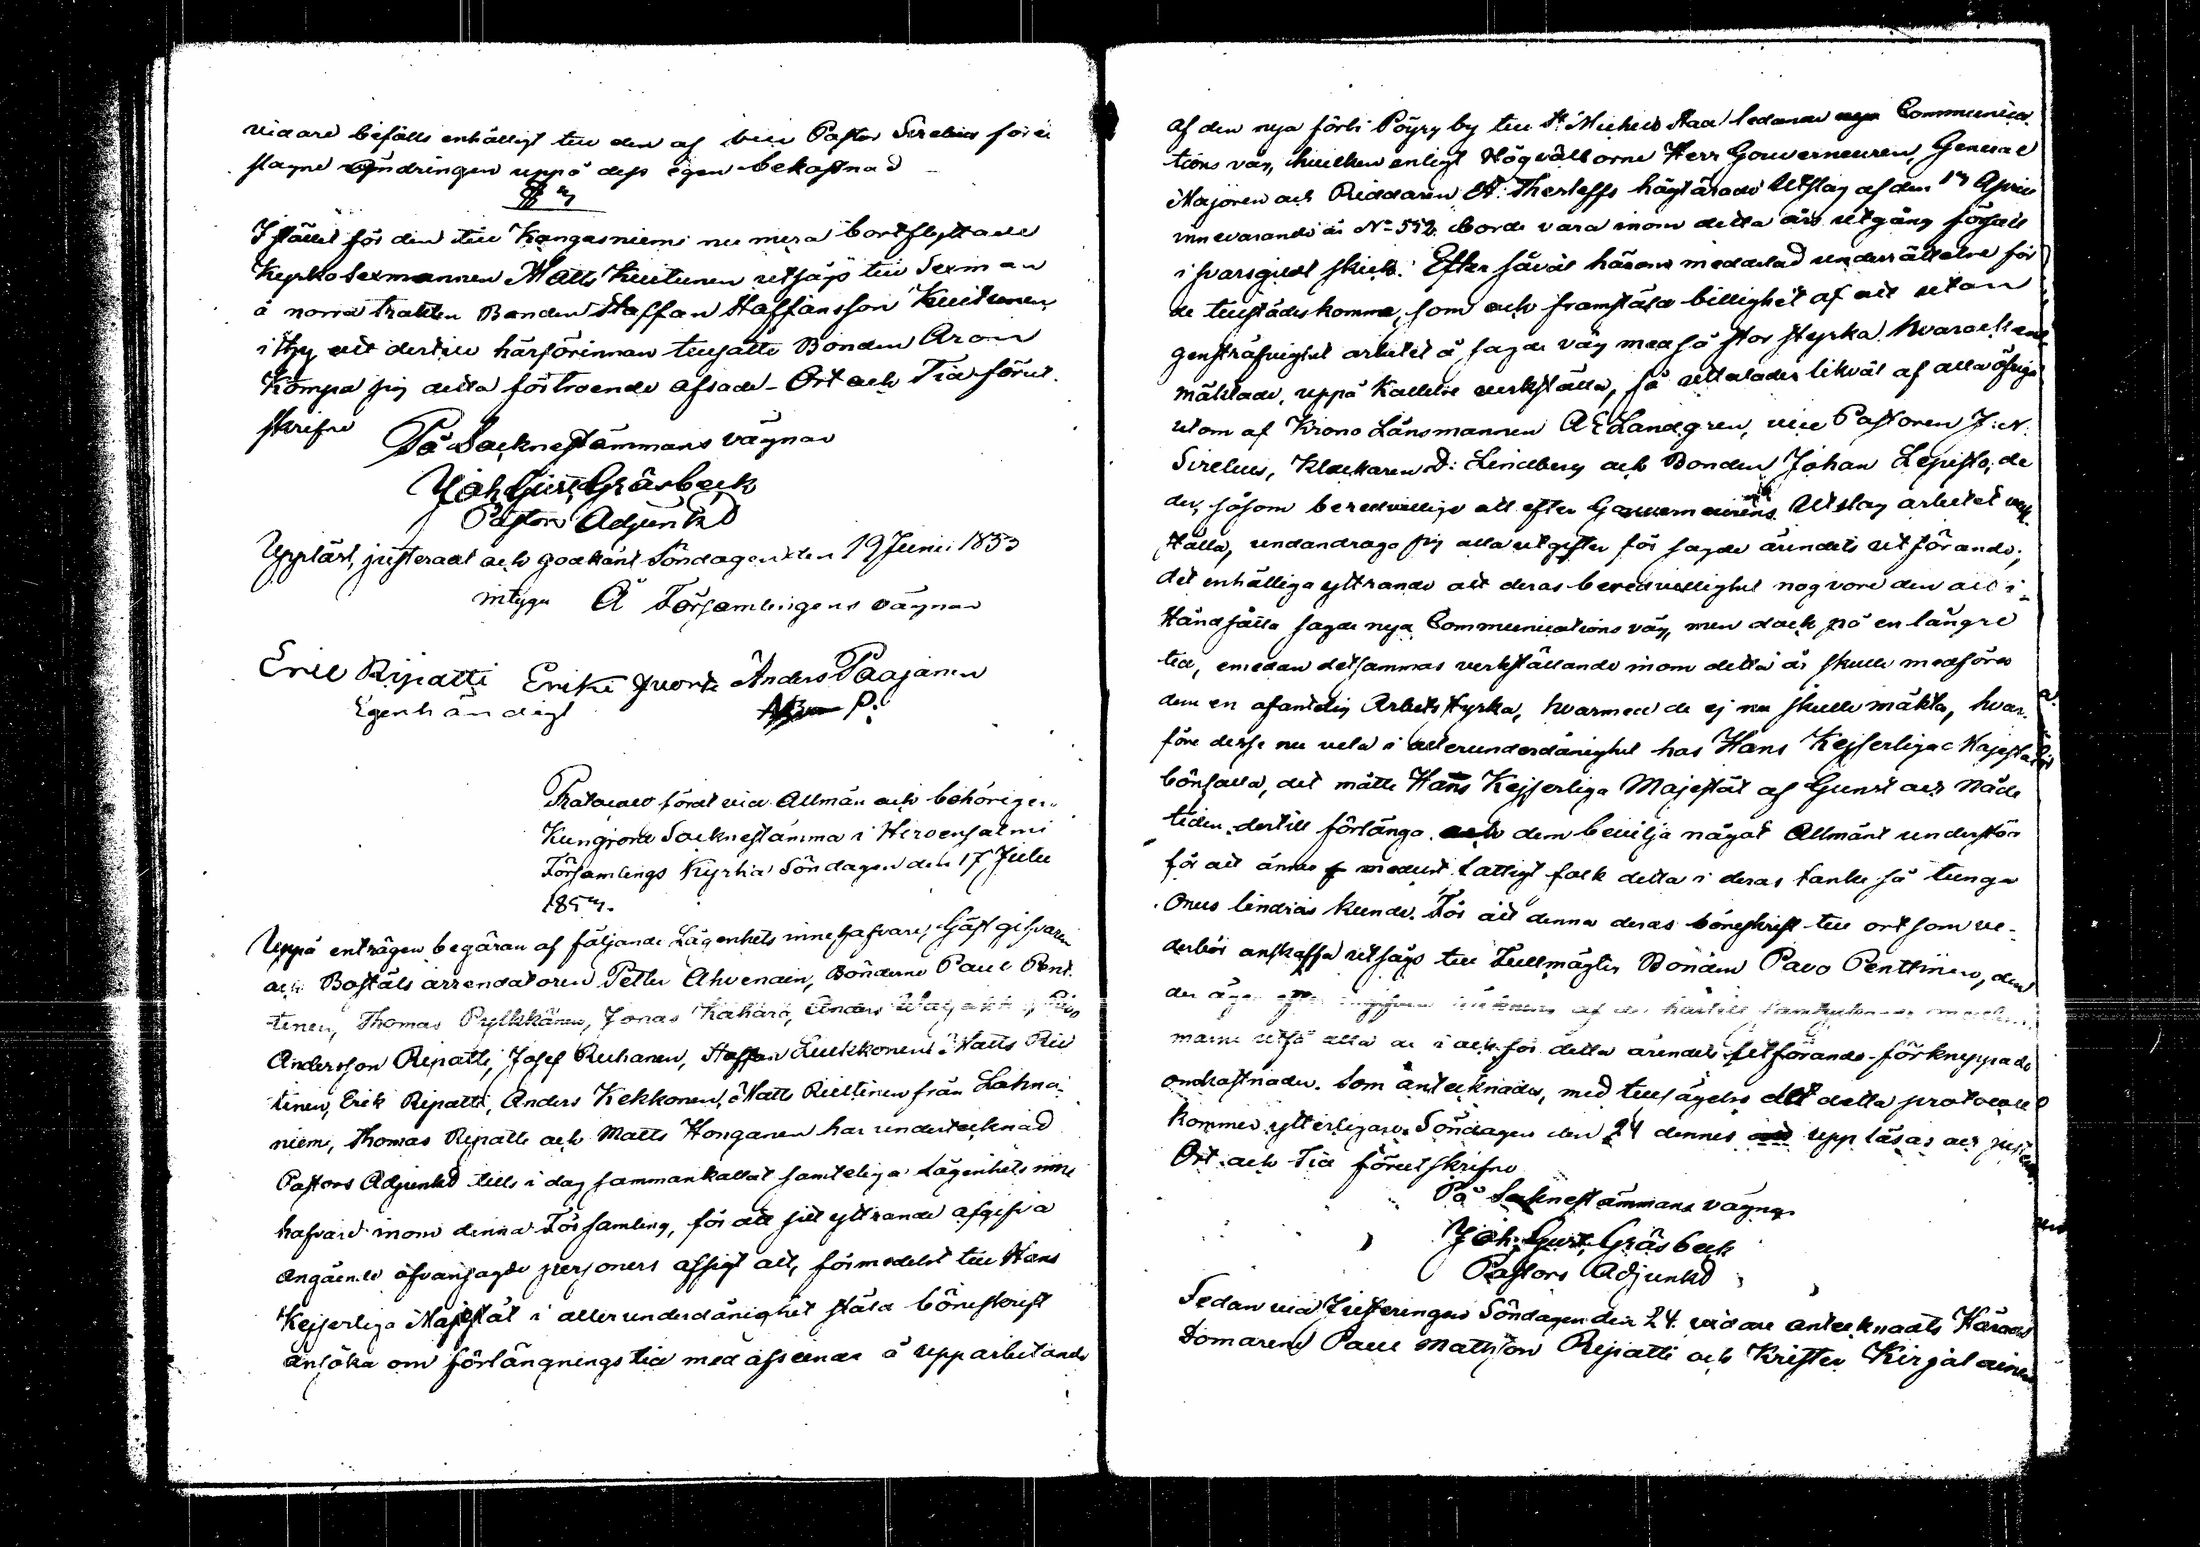 vidare bifälls enhälligt till den af vice Pastor Sirelius före
slagne ändringen uppå dess egen bekostnad
§ 3
I stället för den till Kangasniemi nu mera bortflyttade
Kyrko Sexmannen Matts Kuitunen utsågs till Sexman
å norra trakten Bonden Staffan Staffansson Kuitunen
i thy att dertill härförinnan tillsatte Bonden Aron
Kompa sig detta förtroende afsade - Ort och Tid förut
skrifne
På Socknestämmans vägnar
Joh Gust Gräsbeck
Pastors Adjunkt
Uppläst, justeradt och godkänt Söndagen den 19 Junii 1853
intyga Å Församlingens vägnar
Eric Ripatti Erikki Juorti Anders Paajanen
Egenhändigt P.
Protocoll fördt vid Allmän och behörigen
Kungjord Socknestämma i Hirvensalmi
Församlings Kyrka Söndagen den 17 Julii
1853.
Uppå enträgen begäran af följande Lägenhets innehafvare, Gästgifvaren
och Boställs arrendatoren Petter Ahvenain, Bönderne Paul Pent
tinen, Thomas Pylkkänen, Jonas Kähärä, Anders
Andersson Ripatti, Josef Ruhanen, Staffan Luukkonen Matts Piu
tinen, Erik Ripatti, Anders Kekkonen, Matts Riittinen från Lahna
niemi, Thomas Ripatti och Matts Honganen har undertecknad
Pastors Adjunkt tills i dag sammankallat samtelige Lägenhets inne
hafvare inom denna Församling, för att sitt yttrande afgifva
angående ofvansagde personers afsigt att, förmedelst till Hans
Kejserliga Majestät i allerunderdånighet ställd böneskrift
ansöka om förlängnings tid med afseende å upparbetande
af den nya förbi Pöyry by till St Michels Stad ledande nya Communica
tions väg, hvilken enligt Högvälborne Herr Gouverneuren, General
Majoren och Riddaren A: Thesleffs högtärade Utslag af den 13 April
innevarande år No 552 borde vara inom detta års utgång försatt
i farsgildt skick. Efter såväl härom meddelad underrättelse för
de tillstädeskomne, som och framstäld billighet af att utan
gensträfvighet arbetet å sagde väg med så stor styrka hvar och en
mäktade, uppå Kallelse verkställa, så uttalades likväl af alla öfrige
utom af Krono Länsmannen A E Landgren, vice Pastoren J: N:
Sirelius, Klockaren D: Lindberg och Bonden Johan Lepisto, de
der, såsom beredvillige att efter Gouverneurens Utslag arbetet verk
ställa, undandrogo sig alla utgifter för sagde ärendets utförande,
det enhälliga yttrande att deras beredvillighet nog vore den att i
ståndsätta sagde nya Communications väg, men dock på en längre
tid, emedan detsammas verkställande inom detta år skulle medföra
dem en ofantelig Arbets styrka, hvarmed de ej nu skulle mäkta, hvar
före desse nu vela i allerunderdånighet hos Hans Kejserliga Majestät
bönfalla, det måtte Hans Kejserliga Majestät af Gunst och Nåde
tiden dertill förlänga och dem bevilja något Allmänt understöd
för att ännu medelst fattigt folk detta i deras tanke så tunga
Onus lindras kunde. För att denna deras böneskrift till ort som ve-
derbör anskaffa utsågs till Fullmägtig Bonden Pavo Penttinen, den
der äger efter af de härtill
manne utfå alla de i och för detta ärendets utförande förknippade
omkostnader. Som antecknades, med tillsägelse att detta protocoll
kommer ytterligare Söndagen den 24 dennes upp läsas och justeras
Ort och Tid förutskrifne
På Socknestämmans vägnar
Joh. Gust. Gräsbeck
Pastors Adjunkt
Sedan vid Justeringen Söndagen den 24 vidare antecknats Härads
Domaren Paul Mattsson Ripatti och Krister Kirjalainen